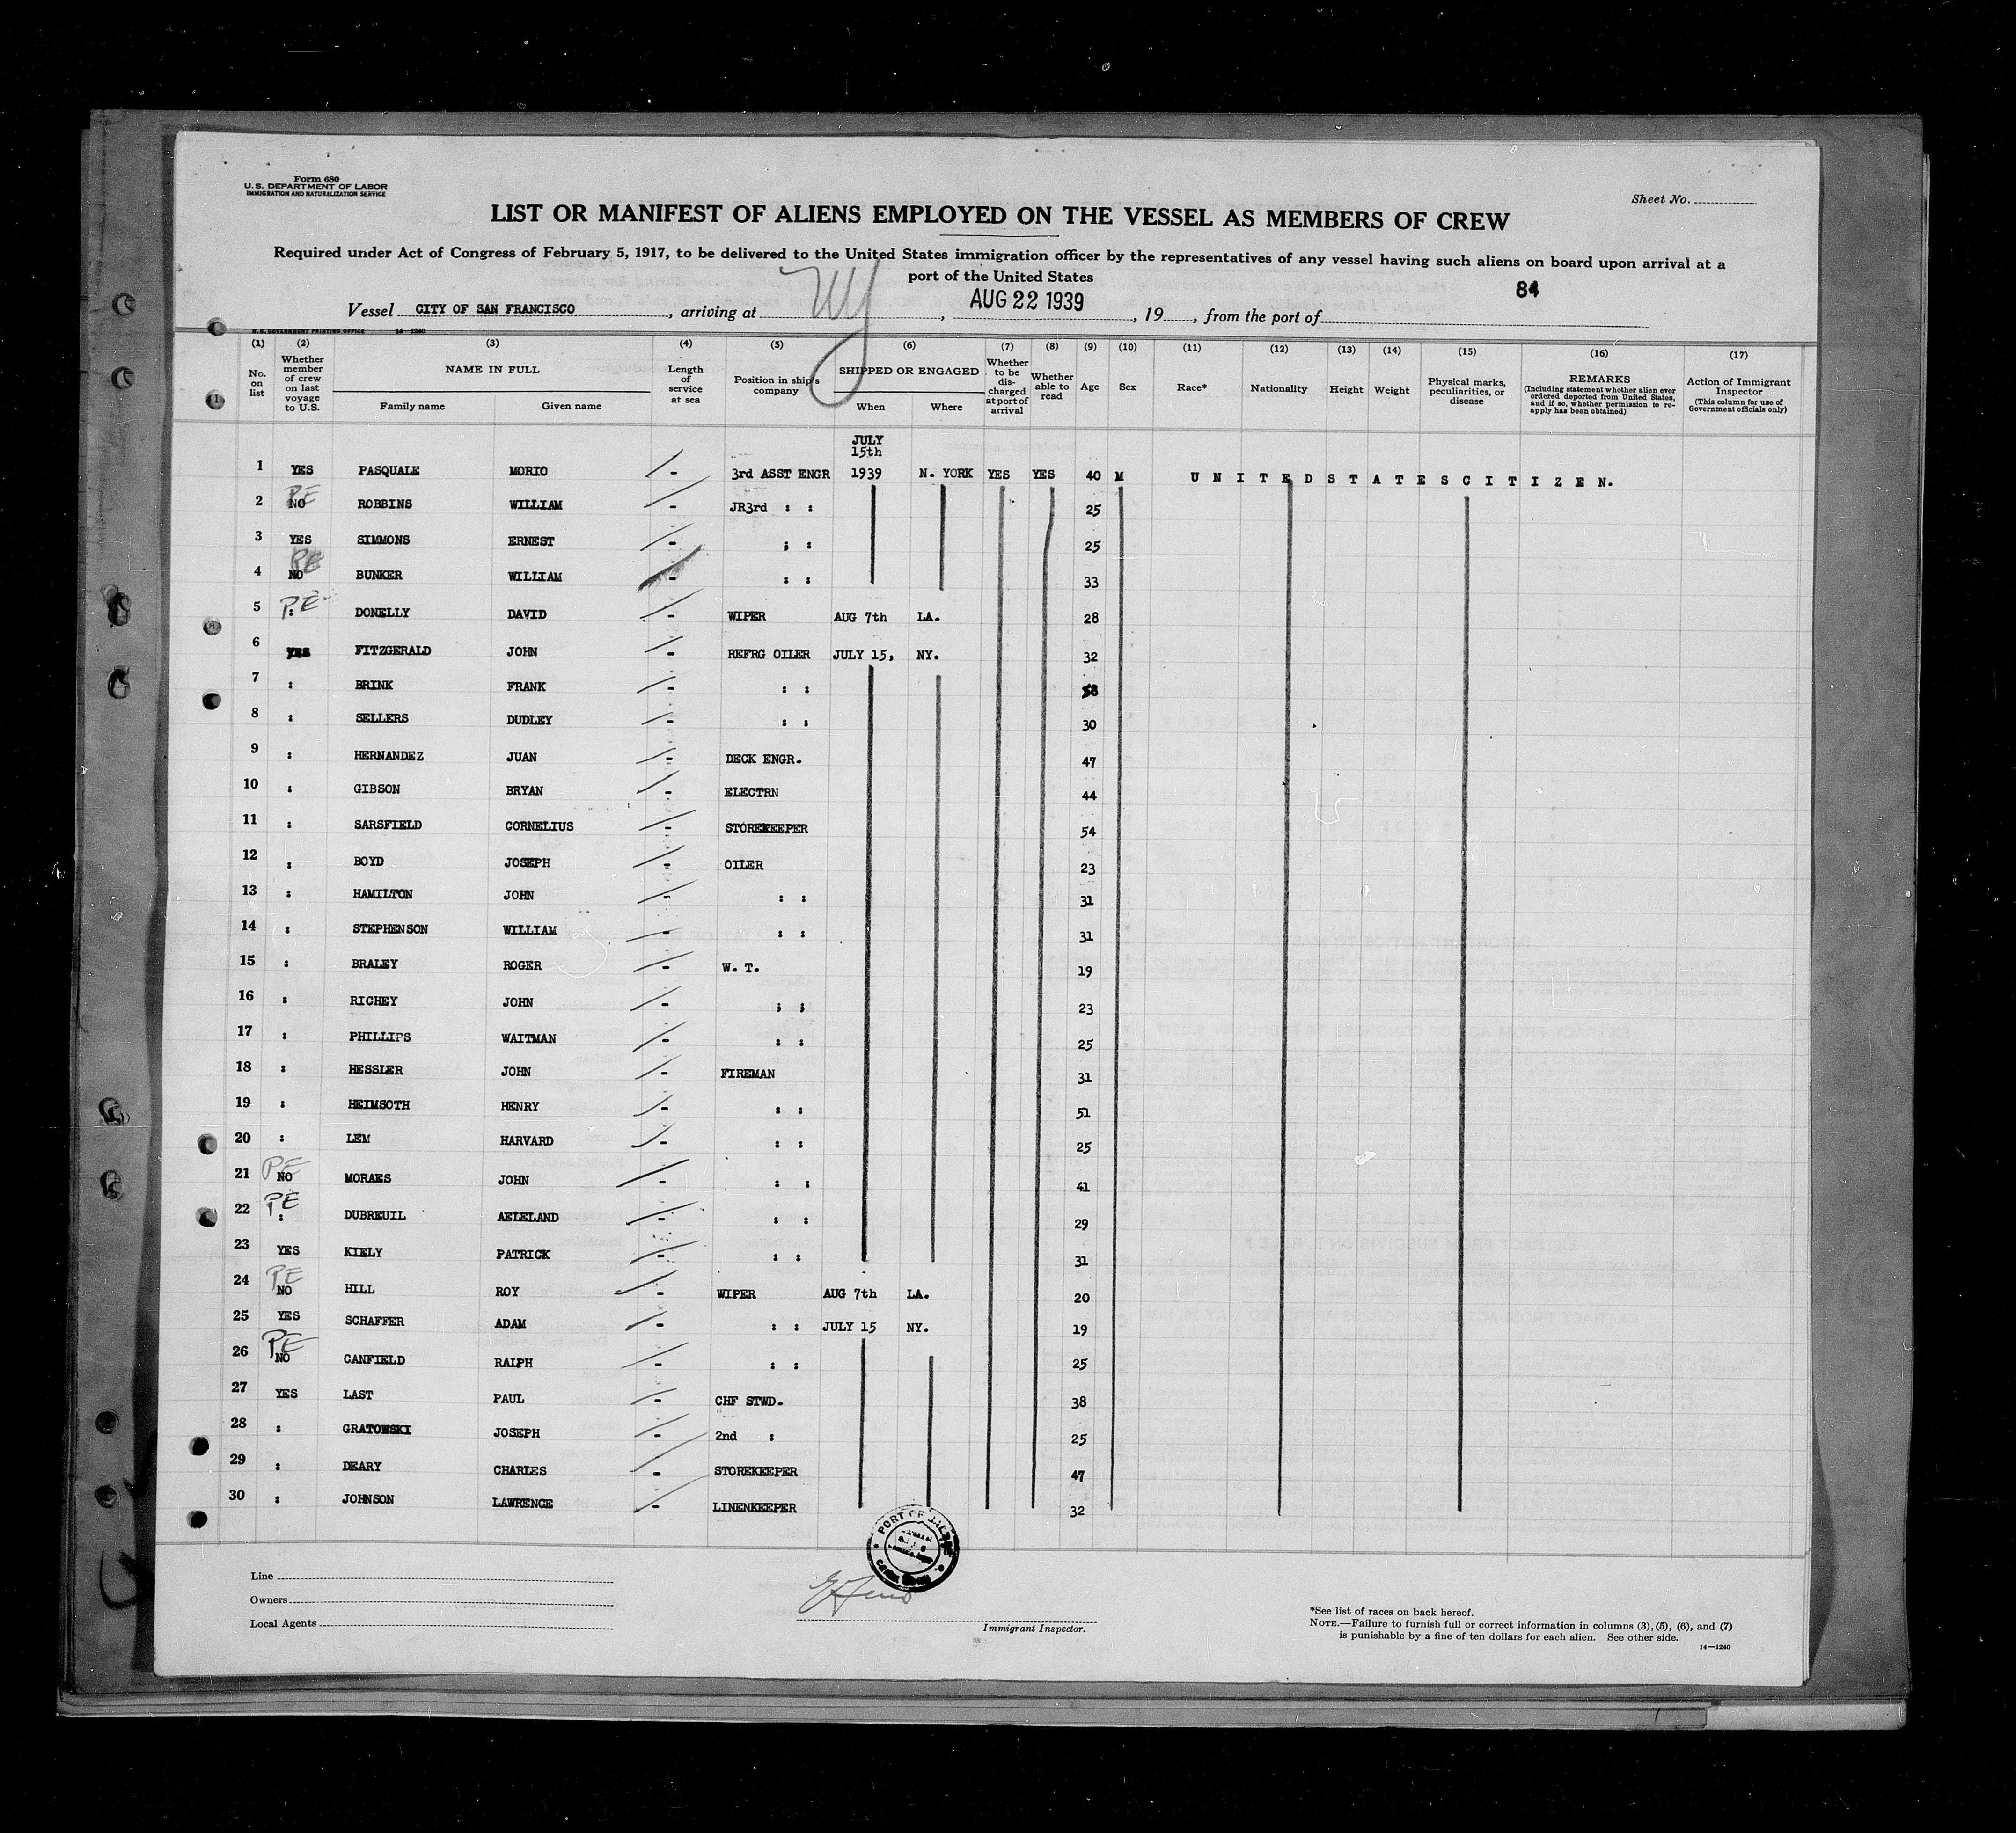 Form 680
U. S. DEPARTMENT OF LABOR
IMMIGRATION AND NATURALIZATION SERVICE
Sheet No.
LIST OR MANIFEST OF ALIENS EMPLOYED ON THE VESSEL AS MEMBERS OF CREW
Required under Act of Congress of February 5, 1917, to be delivered to the United States immigration officer by the representatives of any vessel having such aliens on board upon arrival at a
port of the United States
84
Vessel CITY OF SAN FRANCISCO, arriving at NY, AUG 22 1939, 19, from the port of
U. S. GOVERNMENT PRINTING OFFICE 14—1240
(1) (2) (3) (4) (5) (6) (7) (8) (9) (10) (11) (12) (13) (14) (15) (16) (17)
No. on list
Whether member of crew on last voyage to U.S.
NAME IN FULL
Family name Given name
Length of service at sea
Position in ship's company
SHIPPED OR ENGAGED
When Where
Whether to be discharged at port of arrival
Whether able to read
Age
Sex
Race*
Nationality
Height
Weight
Physical marks, peculiarities, or disease
REMARKS
(Including statement whether alien ever ordered deported from United States, and if so, whether permission to reapply has been obtained)
Action of Immigrant Inspector
(This column for use of Government officials only)
JULY
15th
1 YES PASQUALE MORIO - 3rd ASST ENGR 1939 N. YORK YES YES 40 M U N I T E D S T A T E S C I T I Z E N.
2 PE NO ROBBINS WILLIAM - JR3rd : : 25
3 YES SIMMONS ERNEST - ; : 25
4 PE NO BUNKER WILLIAM - : : 33
5 PE : DONELLY DAVID - WIPER AUG 7th LA. 28
6 YES FITZGERALD JOHN - REFRG OILER JULY 15, NY. 32
7 : BRINK FRANK - : :
8 : SELLERS DUDLEY - : : 30
9 : HERNANDEZ JUAN - DECK ENGR. 47
10 : GIBSON BRYAN - ELECTRN 44
11 : SARSFIELD CORNELIUS - STOREKEEPER 54
12 : BOYD JOSEPH - OILER 23
13 : HAMILTON JOHN - : : 31
14 : STEPHENSON WILLIAM - : : 31
15 : BRALEY ROGER - W. T. 19
16 : RICHEY JOHN - ; ; 23
17 : PHILLIPS WAITMAN - : : 25
18 : HESSLER JOHN - FIREMAN 31
19 : HEIMSOTH HENRY - : : 51
20 : LEM HARVARD - : : 25
21 PE NO MORAES JOHN - : : 41
22 PE : DUBREUIL AELELAND - : : 29
23 YES KIELY PATRICK - : : 31
24 PE NO HILL ROY - WIPER AUG 7th LA. 20
25 YES SCHAFFER ADAM - : : JULY 15 NY. 19
26 PE NO CANFIELD RALPH - : : 25
27 YES LAST PAUL - CHF STWD. 38
28 : GRATOWSKI JOSEPH - 2nd : 25
29 : DEARY CHARLES - STOREKEEPER 47
30 : JOHNSON LAWRENCE - LINENKEEPER 32
PORT OF
Line
Owners
Local Agents
Immigrant Inspector.
*See list of races on back hereof.
NOTE.—Failure to furnish full or correct information in columns (3), (5), (6), and (7)
is punishable by a fine of ten dollars for each alien. See other side.
14—1240